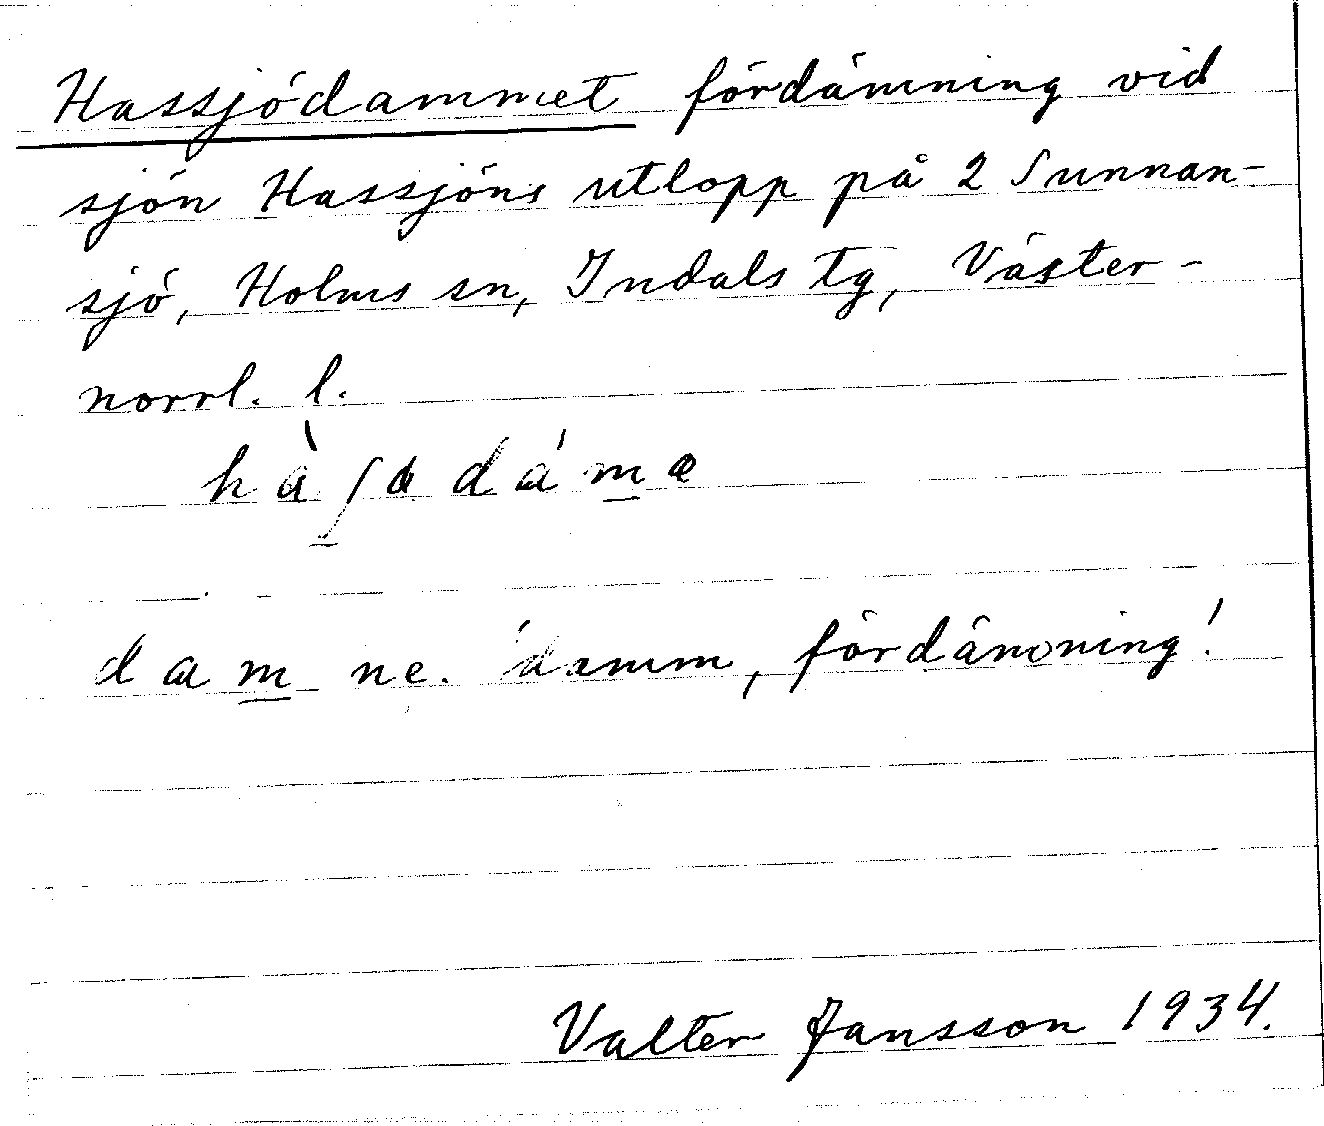 Hassjödammet fördämning vid
sjön Hassjöns utlopp på 2 Sunnan-
sjö, Holms sn, Indals tg, Väster-
norrl. l.
dam ne. 'damm, fördämning'.
Valter Jansson 1934.